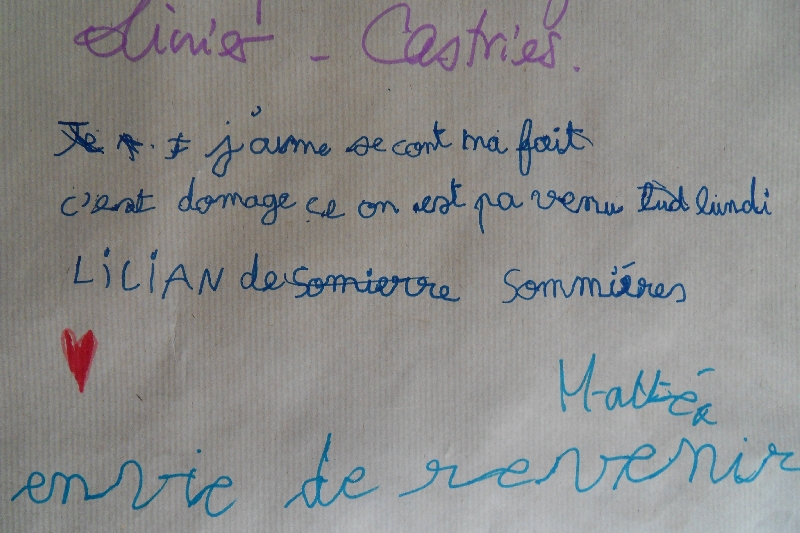 - Castries.
j'aime se cont ma fait
c'est domage ce on est pa venu lundi
LiLiAN de Somierre Sommiéres
Mattéa
envie de revenir